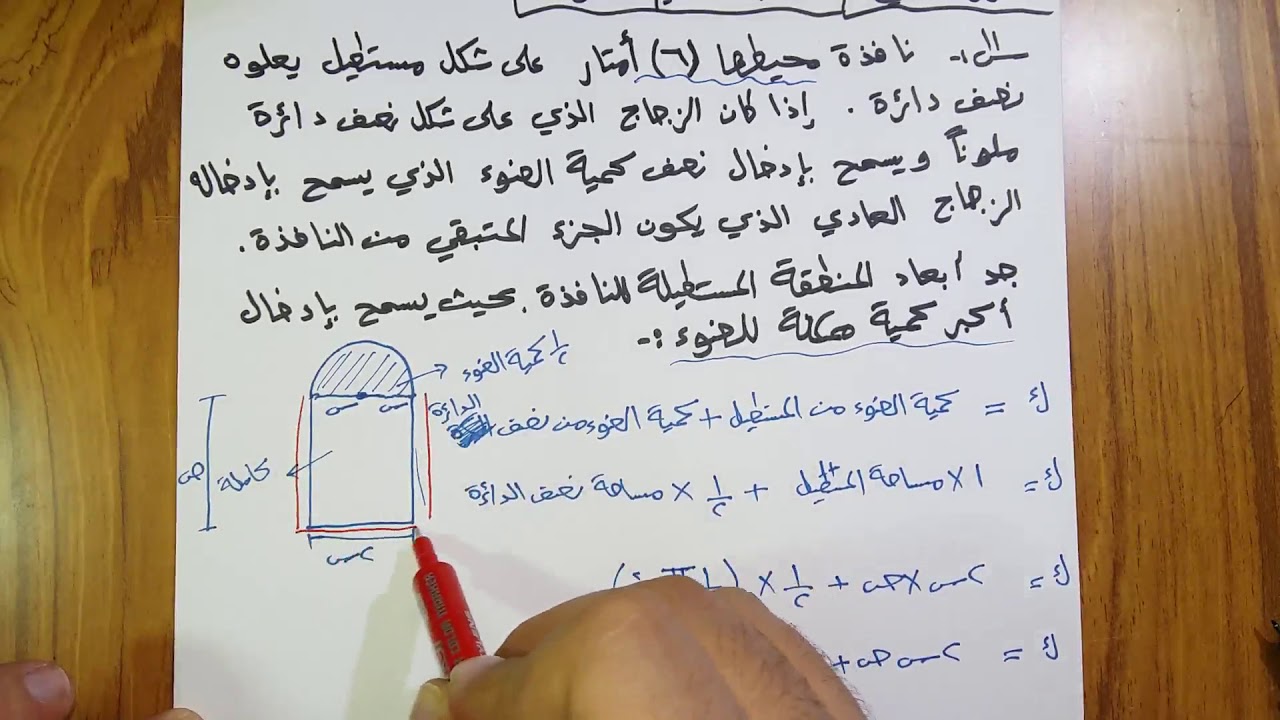 سؤال :- نافذة محيطها (٦) أمتار على شكل مستطيل يعلوه
نصف دائرة . إذا كان الزجاج الذي على شكل نصف دائرة
ملوناً ويسمح بإدخال نصف كمية الضوء الذي يسمح بإدخاله
الزجاج العادي الذي يكون الجزء المتبقي من النافذة .
جد أبعاد المنطقة المستطيلة للنافذة بحيث يسمح بإدخال
أكبر كمية ممكنة للضوء :-
١/٢ كمية الضوء
س س
ص
كاملة
٢س
ك = كمية الضوء من المستطيل + كمية الضوء من نصف الدائرة
ك = ١ × مساحة المستطيل + ١/٢ × مساحة نصف الدائرة
ك = ٢س × ص + ١/٢ × (١
ك = ٢س ص +